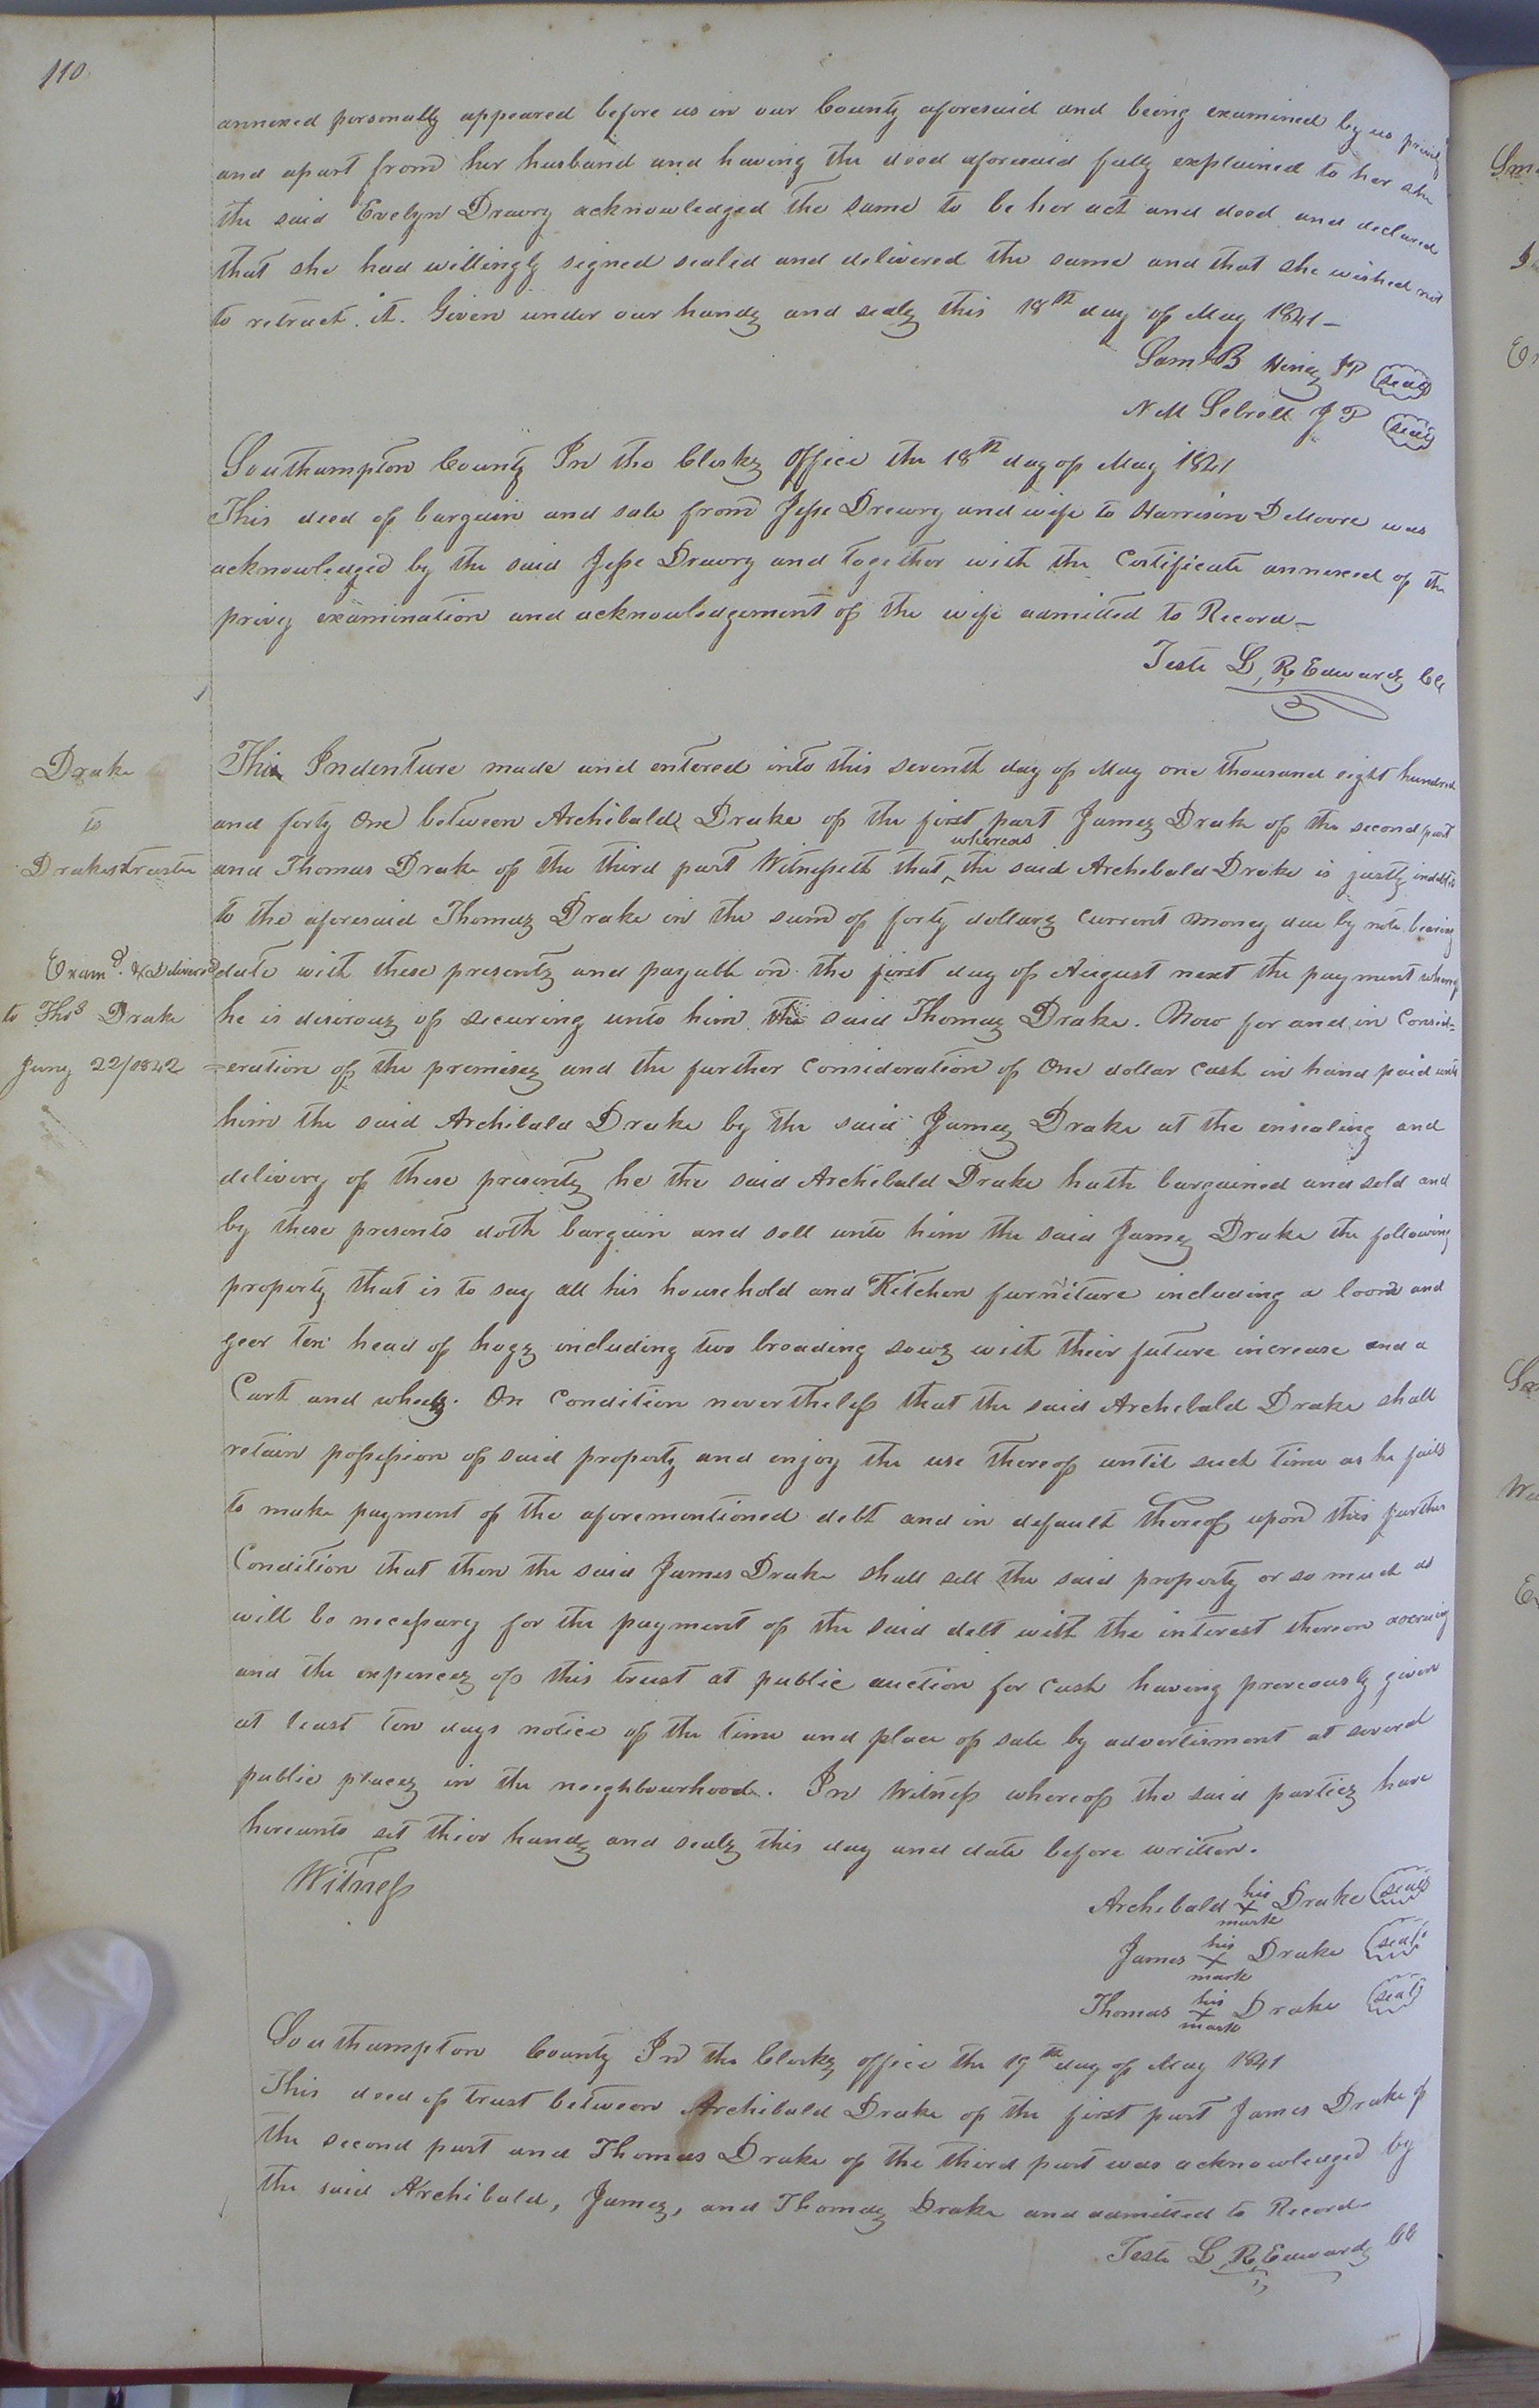 110
annexed personally appeared before us in our County aforesaid and being examined by us privily
and apart from her husband and having the deed aforesaid fully explained to her she
the said Evelyn Drewry acknowledged the same to be her act and deed and declared
that she had willingly signed sealed and delivered the same and that she wished not
to retract it. Given under our hands and seals this 18th day of May 1841 —
Saml B Hines JP (seal)
N M Sebrell J P (seal)
Southampton County In the Clerks office the 18th day of May 1841
This deed of bargain and sale from Jesse Drewry and wife to Harrison D Moore was
acknowledged by the said Jesse Drewry and together with the Certificate annexed of the
privy examination and acknowledgement of the wife admitted to Record —
Teste L, R, Edwards CC
Drake
to
Drakes trustee
This Indenture made and entered into this seventh day of May one thousand eight hundred
and forty One between Archibald Drake of the first part James Drake of the second part
and Thomas Drake of the third part Witnesseth that whereas the said Archibald Drake is justly indebted
to the aforesaid Thomas Drake in the sum of forty dollars current money due by note bearing
Examd. & Delivered
to Thos Drake
Jany 22/1842
date with these presents and payable on the first day of August next the payment whereof
he is desirous of securing unto him the said Thomas Drake. Now for and in Consid=
=eration of the premises and the further Consideration of One dollar cash in hand paid unto
him the said Archibald Drake by the said James Drake at the ensealing and
delivery of these presents he the said Archibald Drake hath bargained and sold and
by these presents doth bargain and sell unto him the said James Drake the following
property that is to say all his household and Kitchen furniture including a loom and
geer ten head of hogs including two breading sows with their future increase and a
Cart and wheels. On Condition nevertheless that the said Archebald Drake shall
retain possession of said property and enjoy the use thereof until such time as he fails
to make payment of the aforementioned debt and in default thereof upon this further
Condition that then the said James Drake shall sell the said property or so much as
will be necessary for the payment of the said debt with the interest thereon accruing
and the expences of this trust at public auction for cash having preveously given
at least ten days notice of the time and place of sale by advertisment at several
public places in the neighbourhood. In Witness whereof the said parties have
hereunto set thier hands and seals this day and date before written.
Witness
Archibald his X mark Drake (seal)
James his X mark Drake (seal)
Thomas his X mark Drake (seal)
Southampton County In the Clerks office the 19th day of May 1841
This deed of trust between Archibald Drake of the first part James Drake of
the second part and Thomas Drake of the third part was acknowledged by
the said Archibald, James, and Thomas Drake and admitted to Record —
Teste L, R, Edwards CC